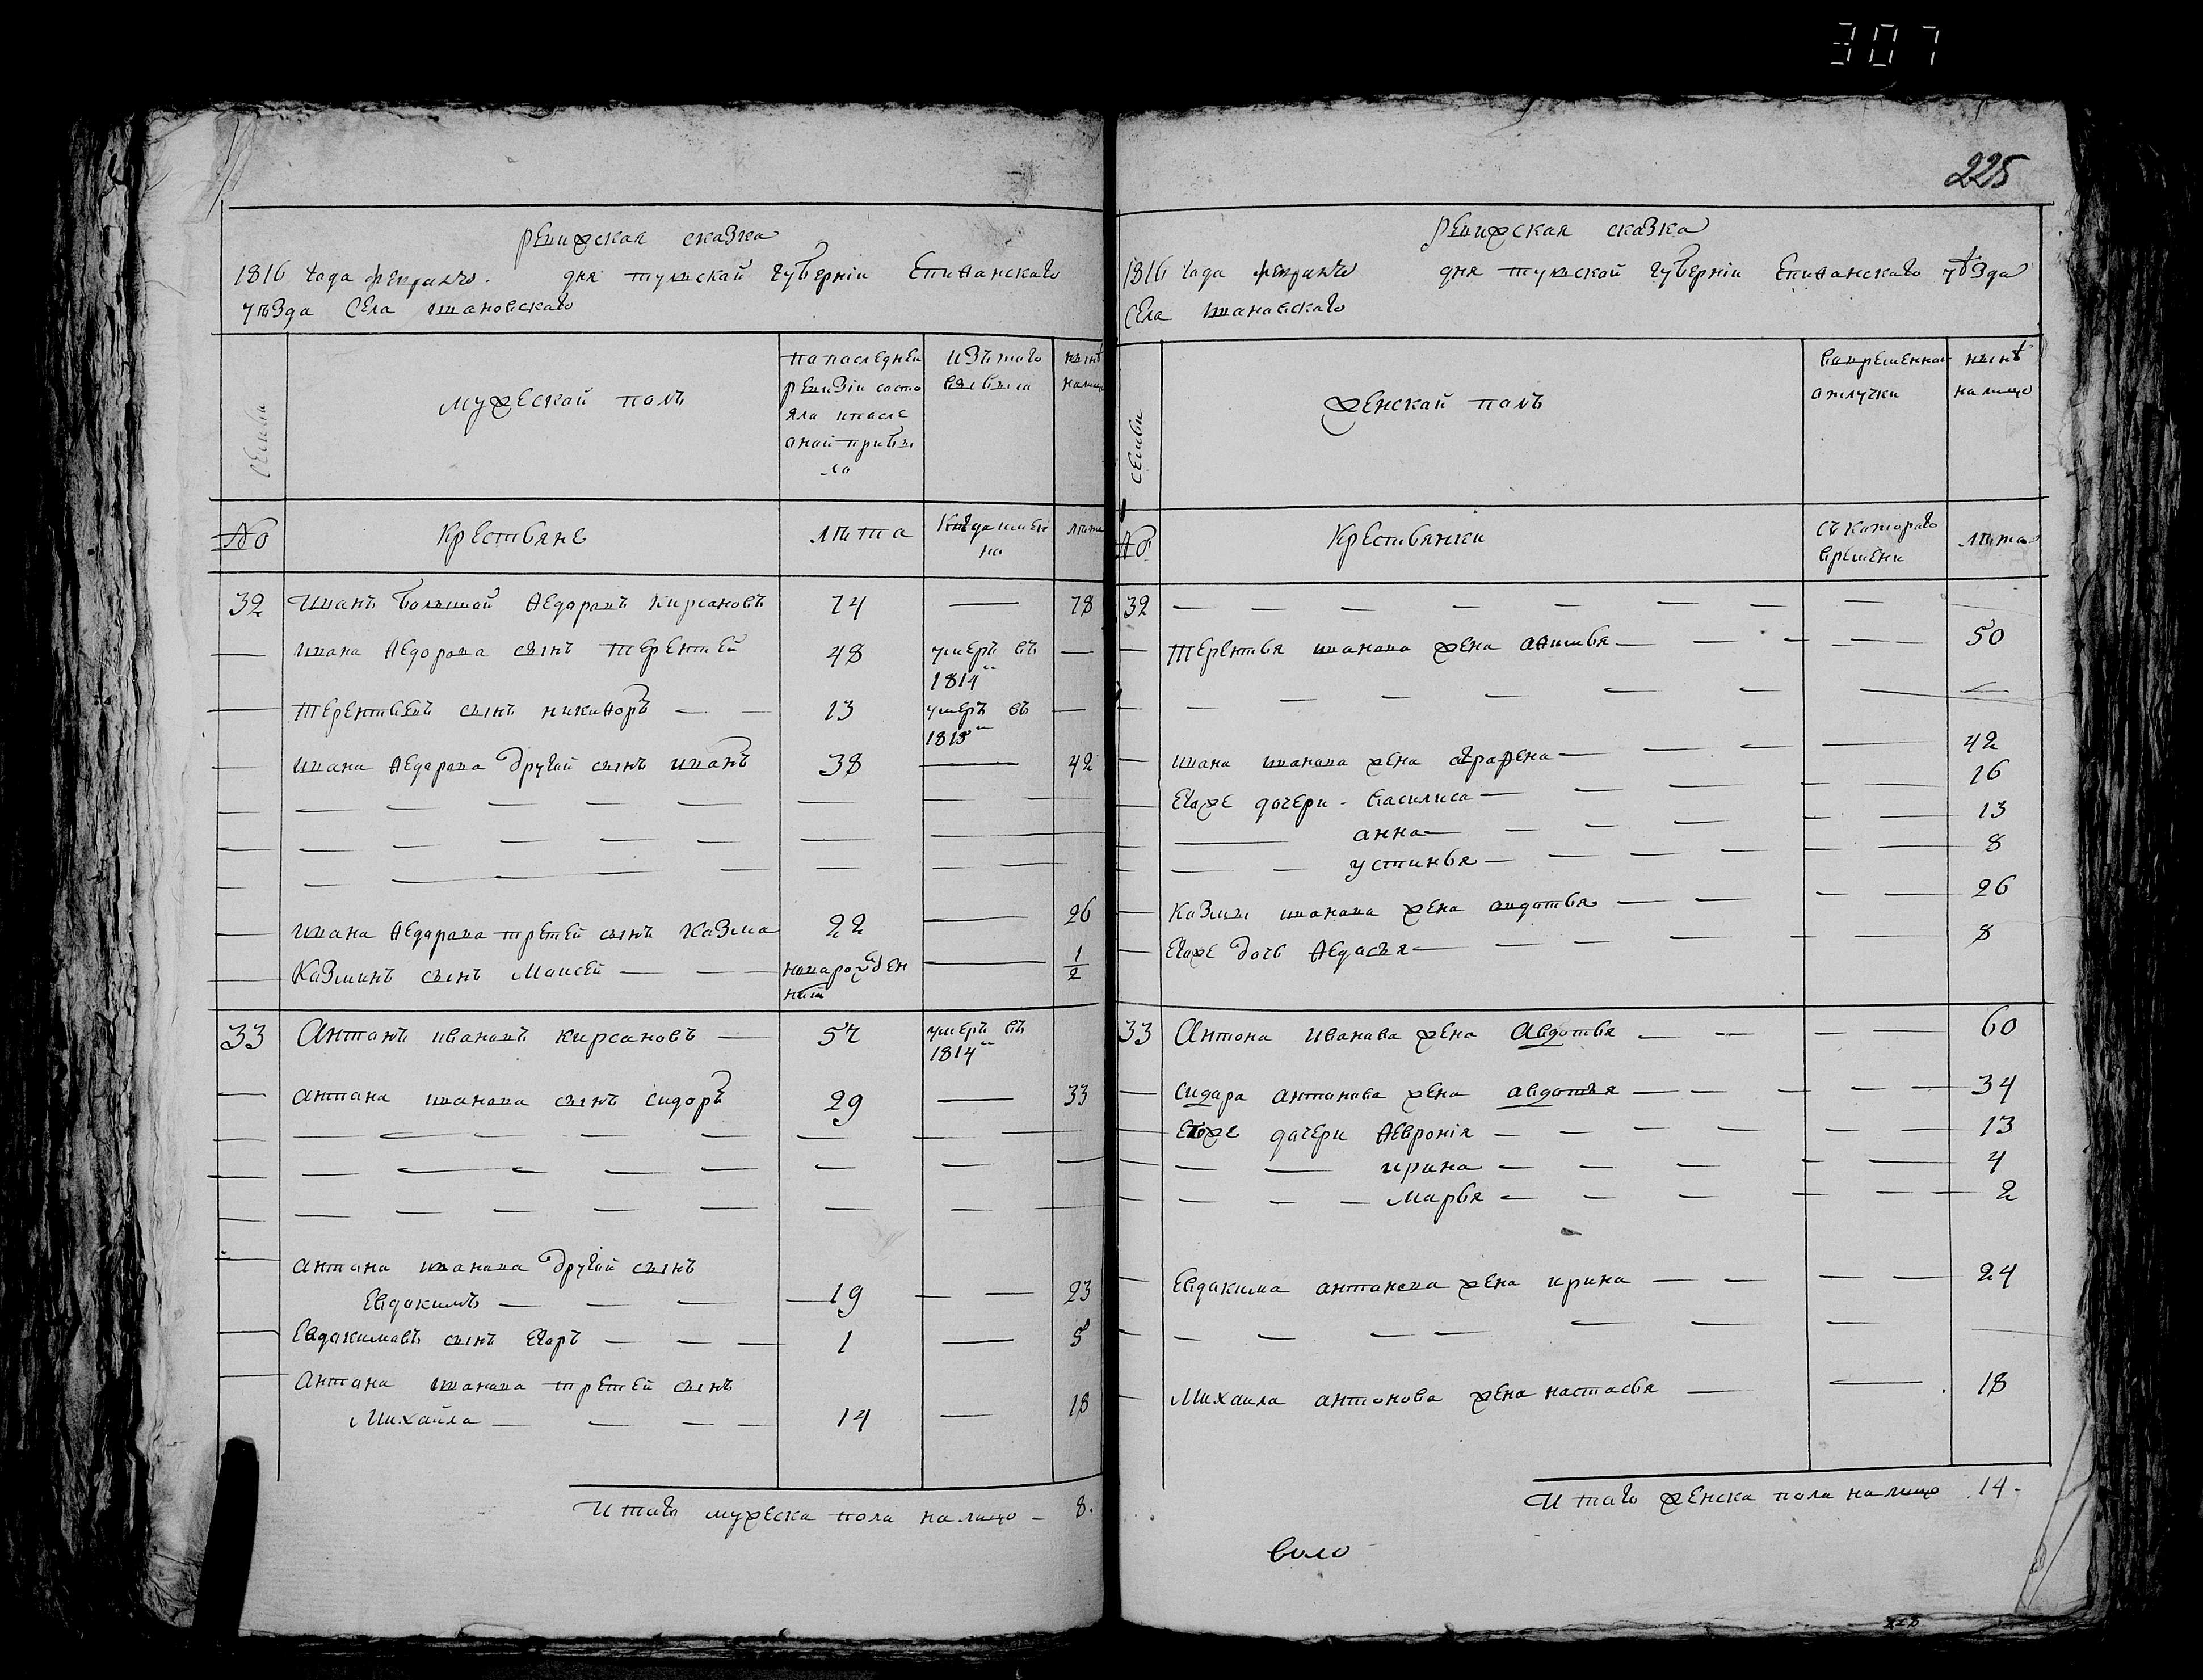 307
225
Ревижская сказка
1816 года февраля дня тульской губернїи Епифанскаго
уѣзда села ивановскаго
Семьи
мужеской полъ
по последней
ревизїи состо
яло ипосле
оной прибы
ло
Изътаго
выбыло
нынѣ
налицо
№
Крестьяне
лѣта
Когда имен
но
лѣта
32 Иванъ большой Ѳедоровъ Кирсановъ 74 — 78
— ивана Ѳедорова сынъ терентей 48 умеръ въ —
1814
— терентьевъ сынъ никифоръ — — 13 умеръ въ —
1813
— ивана Ѳедорова другой сынъ иванъ 38 — 42
— ивана Ѳедорова третей сынъ Казма 22 — 26
— Казминъ сынъ Моисей — — новорожден — 1/2
ной
33 Антонъ ивановъ кирсановъ — 57 умеръ въ
1814
— антона иванова сынъ сидоръ 29 — 33
— антона иванова другой сынъ
Евдокимъ — — — 19 — — 23
— Евдокимовъ сынъ Егоръ — — — 1 — 5
— Антона иванова третей сынъ
Михайла — — — — 14 — 18
Итого мужеска пола налицо — 8.
Ревижская сказка
1816 года февраля дня тульской губернїи Епифанскаго уѣзда
Села ивановскаго
семьи
женской полъ
вовременной
отлучки
нынѣ
налицо
№
Крестьянки
съ котораго
времени
лѣта
32 — — — — — — — —
— терентья иванова жена афимья — — — — — 50
— ивана иванова жена аграфена — — — — 42
— Егоже дочери - василиса — — — — — 16
— анна — — — — — 13
— — устинья — — — — — 8
— Казмы иванова жена авдотья — — — — 26
— Егоже дочь Ѳедосья — — — — — 8
33 Антона Иванава жена Авдотья — — — — 60
— Сидора антонава жена авдотья — — — — — 34
— Егоже дочери Ѳевронїя — — — — — — 13
— — — ирина — — — — — 4
— — — — марья — — — — — — 2
— Евдокима антонова жена ирина — — — — 24
— Михаила антонова жена настасья — — 18
Итого женска пола налицо 14.
было